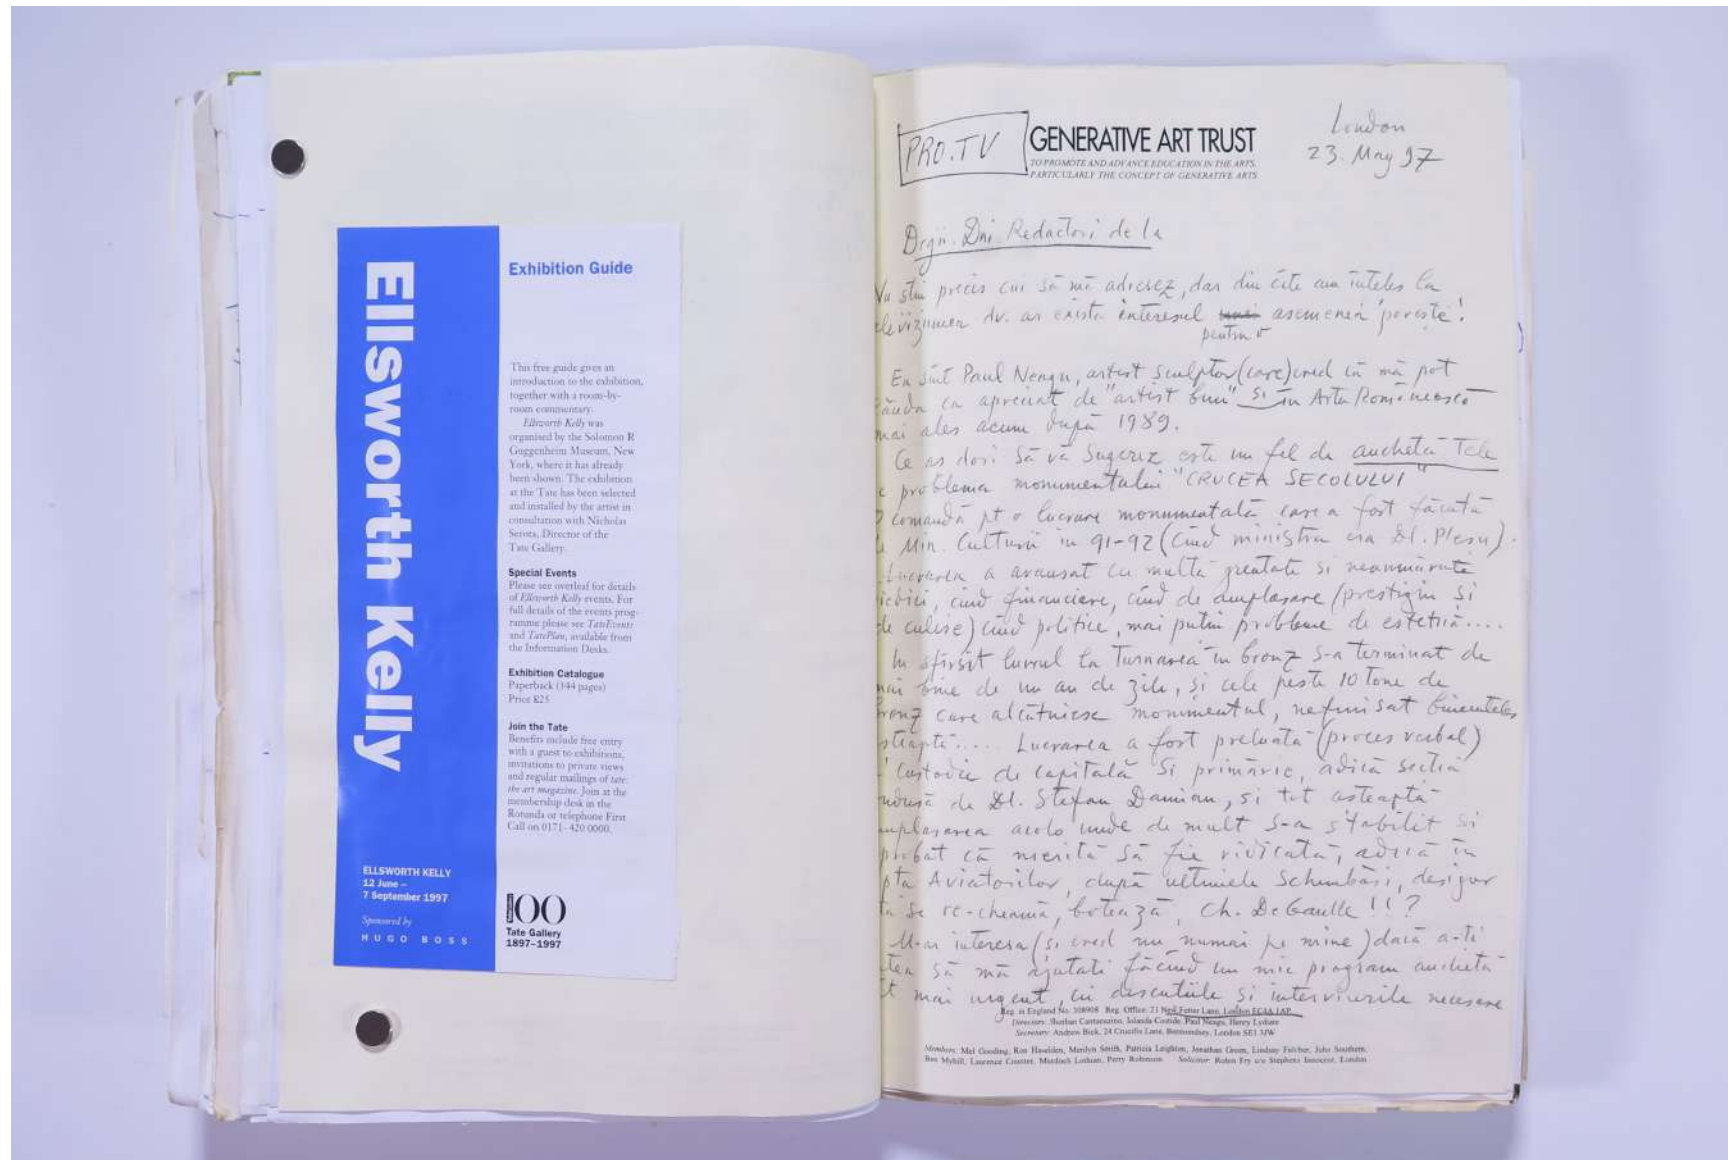 Ellsworth Kelly
ELLSWORTH KELLY
12 June –
7 September 1997
Sponsored by
HUGO BOSS
Exhibition Guide
This free guide gives an
introduction to the exhibition,
together with a room-by-
room commentary.
Ellsworth Kelly was
organised by the Solomon R
Guggenheim Museum, New
York, where it has already
been shown. The exhibition
at the Tate has been selected
and installed by the artist in
consultation with Nicholas
Serota, Director of the
Tate Gallery.
Special Events
Please see overleaf for details
of Ellsworth Kelly events. For
full details of the events prog-
ramme please see TateEvents
and TatePlan, available from
the Information Desks.
Exhibition Catalogue
Paperback (144 pages)
Price £25
Join the Tate
Benefits include free entry
with a guest to exhibitions,
invitations to private views
and regular mailings of tate:
the art magazine. Join at the
membership desk in the
Rotunda or telephone First
Call on 0171-420 0000.
100
Tate Gallery
1897–1997
PRO.TV
GENERATIVE ART TRUST
TO PROMOTE AND ADVANCE EDUCATION IN THE ARTS,
PARTICULARLY THE CONCEPT OF GENERATIVE ARTS
London
23. May 97
Drgii. Dni. Redactori de la
Nu știu precis cui să mă adresez, dar din cîte am înteles la
televiziunea dv. ar exista interesul asemenea 'poveste'!
pentru o
Eu sînt Paul Neagu, artist sculptor (care) cred că mă pot
lăuda ca apreciat de "artist bun" și în Arta Românească
mai ales acum după 1989.
Ce as dori să vă sugerez este un fel de anchetă Tele
problema monumentului "CRUCEA SECOLULUI"
O comandă pt o lucrare monumentală care a fost făcută
de Min. Culturii in 91-92 (cînd ministru era Dl. Plesu).
Lucrarea a avansat cu multă greutate si neanumărate
cînd financiare, cînd de amplasare (prestigiu și
de culise) cînd politice, mai putin probleme de estetică....
In sfîrsit lucrul la Turnarea în bronz s-a terminat de
mai bine de un an de zile, și cele peste 10 tone de
bronz care alcătuiesc monumentul, nefinisat bineînteles
asteaptă.... Lucrarea a fost preluată (proces verbal)
custodie de capitală si primărie, adică sectia
condusă de Dl. Stefan Damian, si tot asteaptă
amplasarea acolo unde de mult s-a stabilit si
probat că merită să fie ridicată, adică în
pta Aviatorilor, după ultimele schimbări, desigur
se re-cheamă, botează, Ch. DeGaulle!!?
M-ar interesa (si cred nu numai pe mine) dacă a-ti
putea să mă ajutati făcînd un mic program anchetă
cît mai urgent, cu discutiile si interviurile necesare
Reg. in England No. 308908 Reg. Office: 21 New Fetter Lane, London EC4A 1AP
Directors: Sherban Cantacuzino, Iolanda Costide, Paul Neagu, Henry Lydiate
Secretary: Andrew Bick, 24 Crucifix Lane, Bermondsey, London SE1 3JW
Members: Mel Gooding, Ron Haselden, Merilyn Smith, Patricia Leighton, Jonathan Green, Lindsay Fulcher, John Southern,
Ben Myhill, Laurence Coster, Murdoch Lothian, Perry Robinson. Solicitor: Robin Fry c/o Stephens Innocent, London